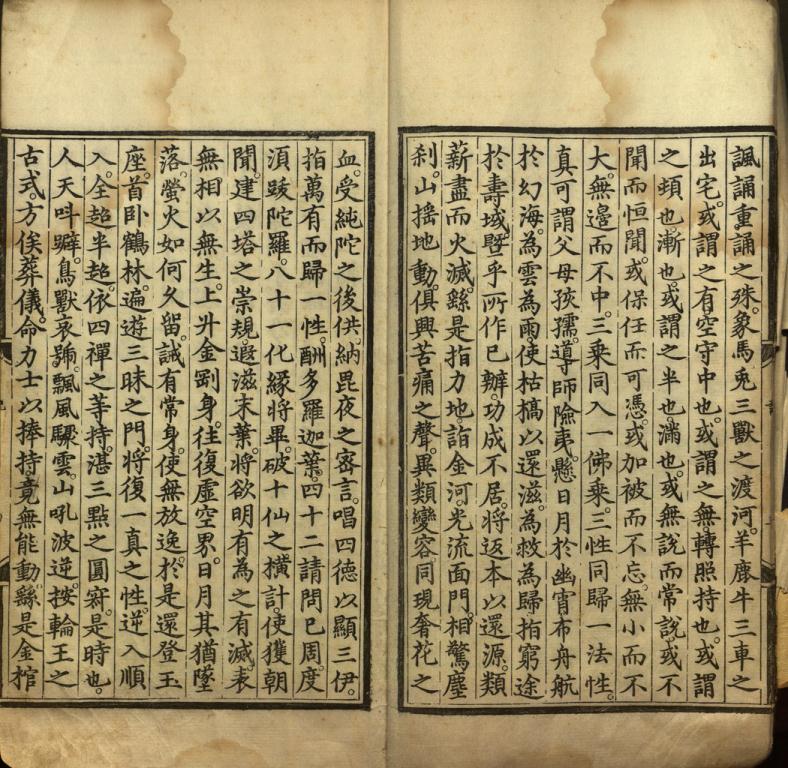 諷誦重誦之殊。象馬兎三獸之渡河。羊鹿牛三車之
出宅。或謂之有空守中也。或謂之無轉照持也。或謂
之頓也。漸也。或謂之半也。滿也。或無說而常說。或不
聞而恒聞。或保任而可憑。或加被而不忘。無小而不
大。無邊而不中。三乘同入一佛乘。三性同歸一法性。
真可謂父母孩孺。導師險夷。懸日月於幽宵。布舟航
於幻海。為雲為雨。使枯槁以還滋。為救為歸。指窮途
於壽域。暨乎所作已辦。功成不居。將返本以還源。類
薪盡而火滅。繇是指力地。詣金河。光流面門。相驚塵
刹。山搖地動。俱興苦痛之聲。異類變容。同現奢花之
血。受純陀之後供。納毘夜之密言。唱四德以顯三伊。
指萬有而歸一性。酬多羅迦葉。四十二請問已周。度
須跋陀羅。八十一化緣將畢。破十仙之橫計。使獲朝
聞。建四塔之崇規。遐滋末葉。將欲明有為之有滅。表
無相以無生。上升金剛身。往復虛空界。日月其猶墜
落。螢火如何久留。誡有常身。使無放逸。於是還登玉
座。首卧鶴林。遍遊三昧之門。將復一真之性。逆入順
入。全超半超。依四禪之等持。湛三點之圓寂。是時也。
人天叫躃。鳥獸哀號。飄風驟雲。山吼波逆。按輪王之
古式。方俟葬儀。命力士以捧持。竟無能動。繇是金棺